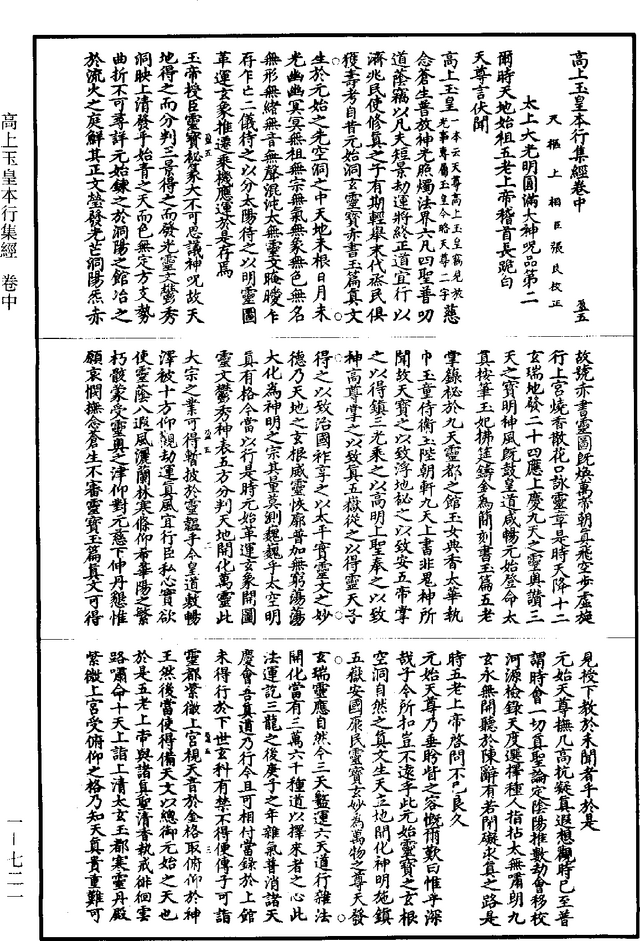 高上玉皇本行集經卷中
天樞上相臣張良校正
盈五
太上大光明圓滿大神呪品第二
爾時天地始祖五老上帝稽首長跪白
天尊言伏聞
高上玉皇一本云天尊高上玉皇竊見於光事專屬玉皇今略天尊二字慈
念蒼生普放神光照燭法界六凡四聖普叨
道蔭竊以凡夫短景劫運將終正道宜行以
濟兆民使修真之子有期輕舉末代烝民俱
獲壽考自昔元始洞玄靈寶赤書玉篇真文
生於元始之先空洞之中天地未根日月未
光幽幽冥冥無祖無宗無氣無象無色無名
無形無緒無音無聲混沌太無靈文晻曖乍
存乍亡二儀待之以分太陽待之以明靈圖
革運玄象推遷乘機應運於是存焉
玉帝授臣靈寶秘篆大不可思議神呪故天
地得之而分判三景得之而發光靈文鬱秀
洞映上清發乎始青之天而色無定方文勢
曲折不可尋詳元始鍊之於洞陽之館冶之
於流火之庭鮮其正文瑩發光芒洞陽炁赤
故號赤書靈圖既煥萬帝朝真飛空步虛旋
行上宮燒香散花口詠靈章是時天降十二
玄瑞地發二十四應上慶九天之靈奧讚三
天之寶明神風既鼓皇道咸暢元始登命太
真按筆玉妃拂筵鑄金為簡刻書玉篇五老
掌錄祕於九天靈都之館玉女典香太華執
巾玉童侍衛玉陛朝軒九天上書非鬼神所
聞故天寶之以致浮地祕之以致安五帝掌
之以得鎮三光乘之以高明上聖奉之以致
神高尊掌之以致真五嶽從之以得靈天子
得之以致治國祚享之以太平實靈文之妙
德乃天地之玄根威靈恢廓普加無窮蕩蕩
大化為神明之宗其量莫測巍巍乎太空明
真有格今當以行是時元始革運玄象開圖
靈文鬱秀神表五方分判天地開化萬靈此
大宗之業可得暫披於靈韞乎令皇道敷暢
澤被十方仰覩劫運真風宜行臣私心實欲
使靈蔭八遐風灑蘭林寒條仰希華陽之繁
朽骸蒙受靈奧之津仰對元慈下仲丹懇惟
願哀憫撫念蒼生不審靈寶玉篇真文可得
見授下教於未聞者乎於是
元始天尊撫几高抗凝真遐想觀時已至普
謂時會一切真聖論定陰陽推數劫會移校
河源檢錄天度選擇種人指拈太無嘯朗九
玄永無開聽於陳辭有若閉礙求真之路是
時五老上帝啓問不已良久
元始天尊乃垂眄昔之容慨爾歎曰惟乎深
哉子今所扣豈不遠乎此元始靈寶之玄根
空洞自然之真文生天立地開化神明施鎮
五嶽安國康民靈寶玄妙為萬物之尊天發
玄瑞靈應自然今三天翳運六天道行雜法
開化當有三萬六千種道以擇來者之心此
法運訖三龍之後庚子之年雜氣普消諸天
慶會吾真道乃行今且可相付當錄於上館
未得行於下世玄科有禁不得便傳子可詣
靈都紫微上宮視天音於金格取俯仰於神
王然後當使得備天文以總御元始之天也
於是五老上帝與諸真聖清香執戒徘徊雲
路嘯命十天上詣上清太玄玉都寒靈丹殿
紫微上宮受俯仰之格乃知天真貴重難可
高上玉皇本行集經 卷中
一—七二一